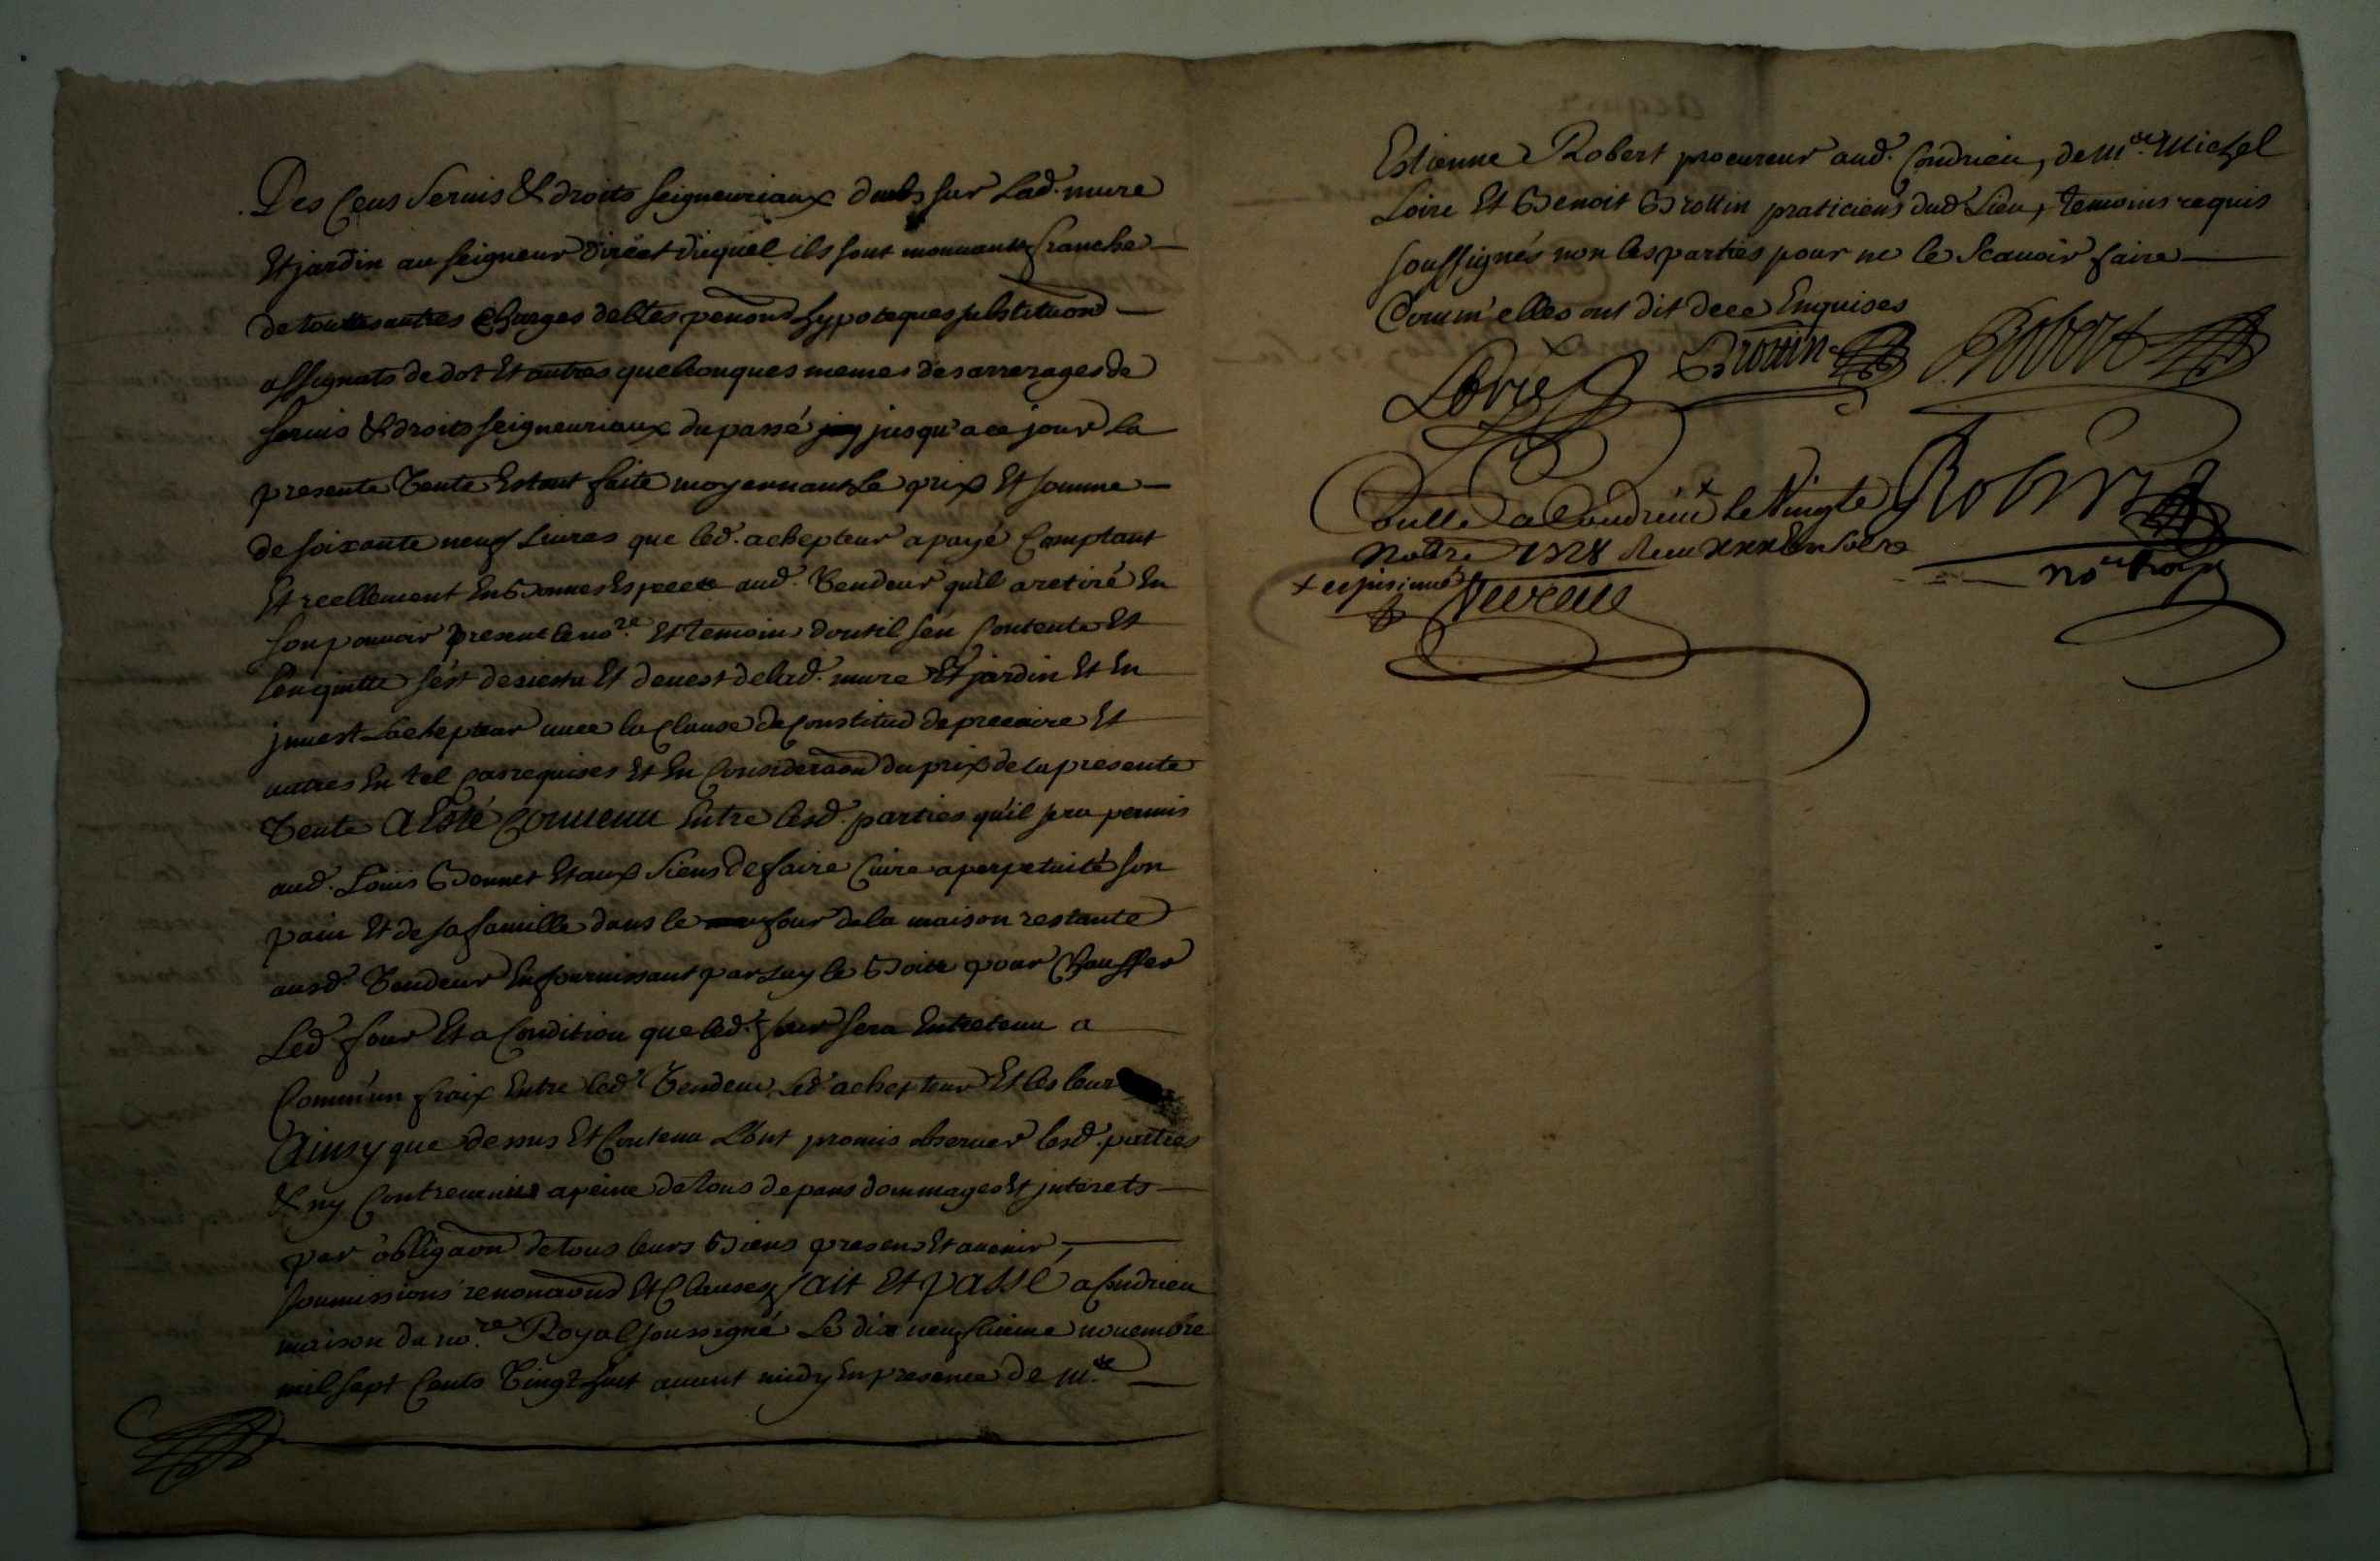 Des Cens Servis & droits seigneuriaux dubs sur Lad. mure
Et jardin au seigneur direct duquel ils sont mouvants franche
de touttes autres charges debtes penons hypoteques substitu͠ons
assignats de dot Et autres quelconques memes des arrerages de
servis & droits seigneuriaux du passé jusqu'a ce jour La
presente Vente Estant faite moyennant Le prix Et somme
de soixante neuf Livres que led. achepteur a payé Comptant
Et reellement En Bonnes Especes aud. Vendeur qu'il a retiré En
son pouvoir present Le no.re Et temoins dont il s'en Contente Et
L'en quitte s'est desvestu Et devest de lad. mure Et jardin Et En
jnvest L'achepteur avec la Clause de Constitud de precaire Et
autres En tel Cas requises Et En Considera͠on du prix de la presente
Vente A Esté Convenu Entre lesd. parties qu'il sera permis
aud. Louis Bonnet Et aux siens de faire Cuire a perpetuité son
pain Et de sa famille dans le four de la maison restante
ausd. Vendeur En fournissant par Luy le Bois pour Chauffer
Led four Et a Condition que led. four sera Entretenu a
Commun fraix Entre led. Vendeur Led. achepteur Et les leurs
Ainsy que dessus Et Contenu L'ont promis observer lesd. parties
& ny Contrevenir a peine de tous depans dommages Et jnterets
par obliga͠on de tous leurs Biens presens Et avenir,
soumissions renon͠aons Et Clauses fait Et passé a Condrieu
maison du no.re Royal soussigné Le dix neufvieme novembre
mil sept Cents Vingt huit avant midy En presence de M.re
Estienne Robert procureur aud. Condrieu, de M.re Michel
Loire Et Benoit Brottin praticiens dud Lieu, temoins requis
soussignés non les parties pour ne le Scavoir faire
Comm'elles ont dit de ce Enquises
Loire Brottin Robert
Contrôllé a Condrieu x le Vingte
1728
Robert
no.re Royal